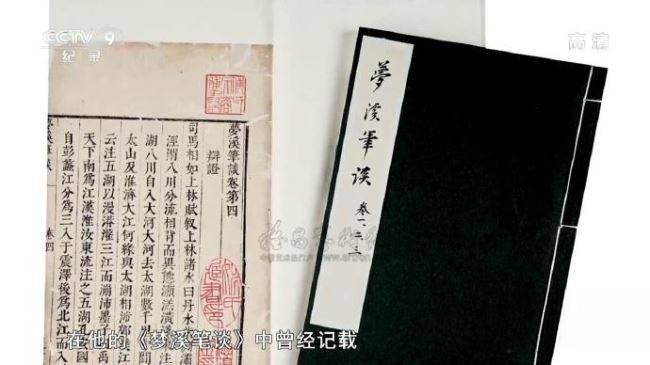 CCTV 9
纪录
高清
夢溪筆談
卷一、二、三
夢溪筆談卷第四
辯證
司馬相如上林賦敘上林諸水曰丹水
涇渭八川分流相背而異態灝溔潢
湖八川自入大河大河去太湖數千
太山及淮濟大江何緣與太湖相
云注五湖以漫漭灌三江而漰沛墨子
天下南爲江漢淮汝東流注之五湖孔
自彭蠡江分爲三入于震澤後爲北江而入
卷四
在他的《梦溪笔谈》中曾经记载